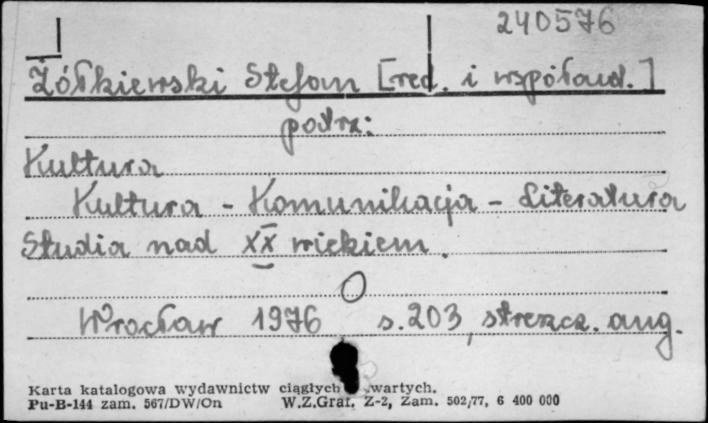 240576
Żółkiewski Stefan [red. i współaud.]
patrz:
Kultura
Kultura - Komunikacja - Literatura
Studia nad XX wiekiem.
Wrocław 1976 s. 203, streszcz. ang.
Karta katalogowa wydawnictw ciągłych wartych.
Pu-B-144 zam. 567/DW/On W.Z.Graf. Z-2, Zam. 502/77, 6 400 000